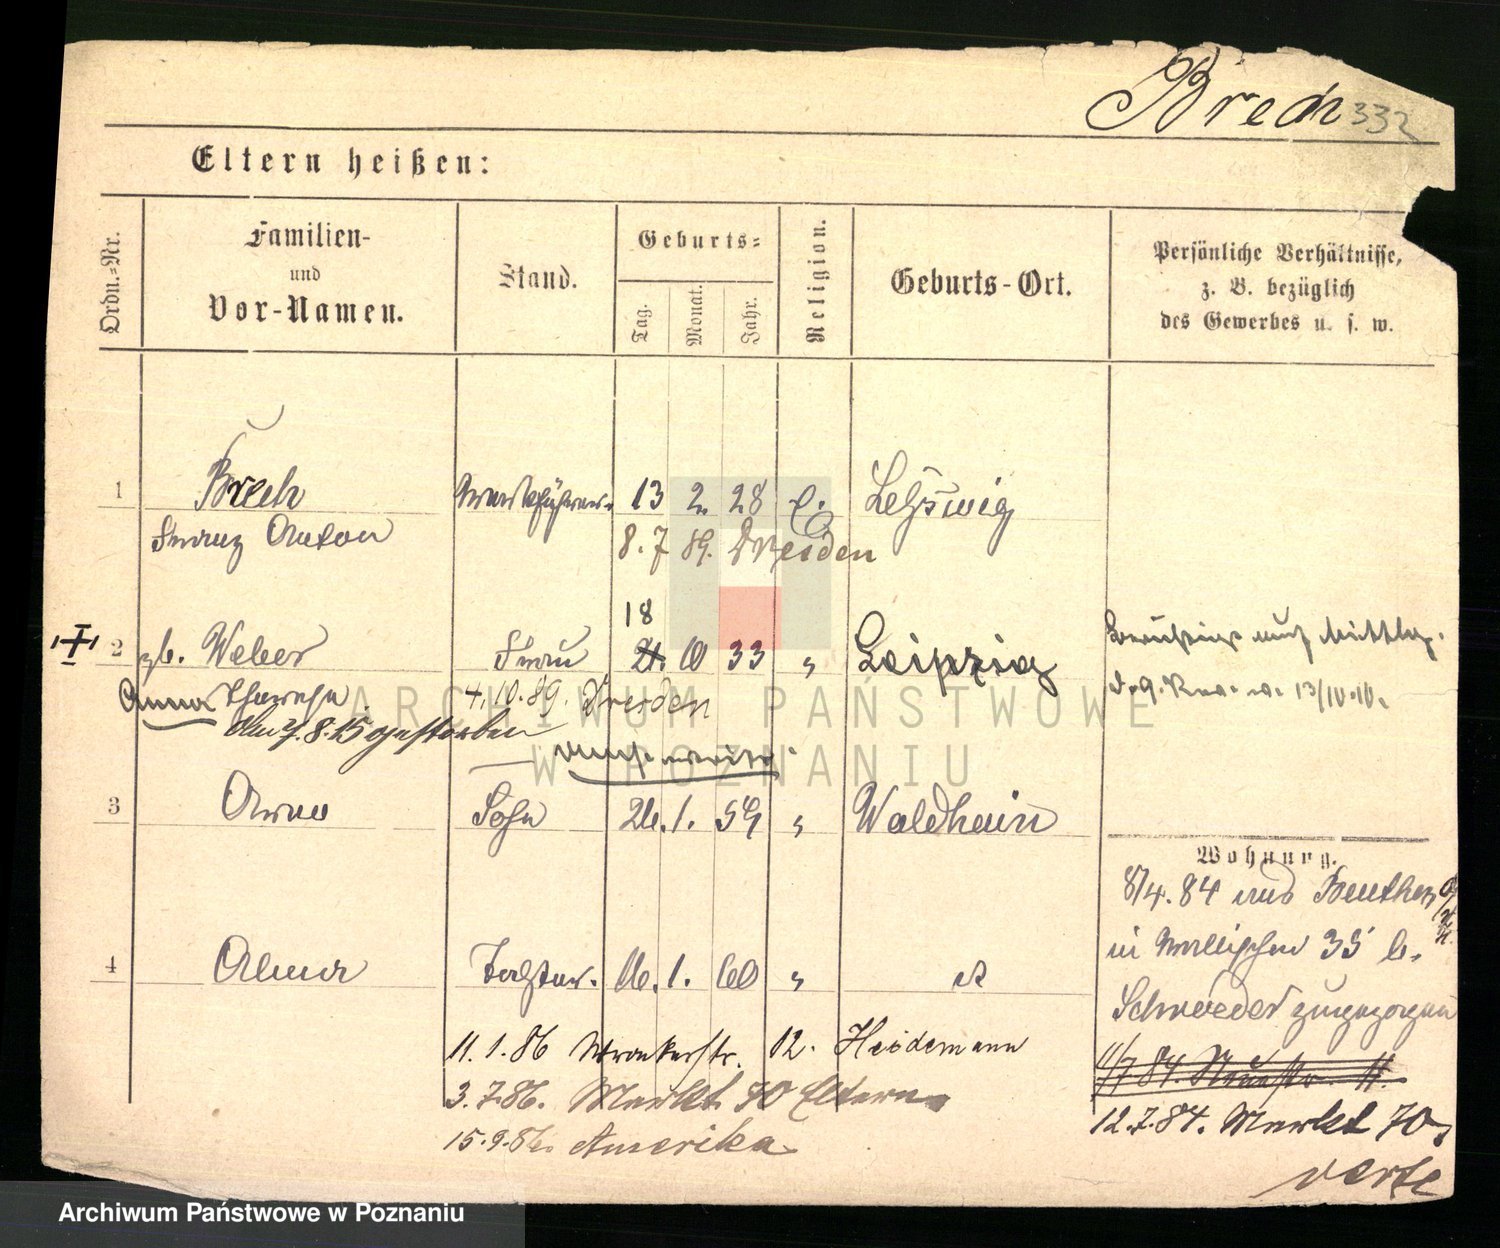 Brech 332
Eltern heißen:
Ordn.=Nr.
Familien-
und
Vor-Namen.
Stand.
Geburts=
Tag. Monat. Jahr.
Religion.
Geburts-Ort.
Persönliche Verhältnisse,
z. B. bezüglich
des Gewerbes u. s. w.
1 Brech 13 2. 28 e.
Franz Anton 8. 7 89. Dresden
18
2 gb. Weber Frau 10 33 " Leipzig
Anna 4. 10. 89. Dresden
8. 15 gestorben
13/10.10.
3 Sohn 26. 1. 59 " Waldhain
Wohnung.
8/4. 84 aus Beuthen
in 35 b.
Schroeder zugezogen
4 Alma Tochter. 16. 1. 60 "
11. 1. 86 Wronkerstr. 12. Heidemann
11/7 84. Neuestr. 11.
3. 7. 86. Markt 70 Eltern
12. 7. 84. Markt 70,
15. 9. 86. Amerika
verte
ARCHIWUM PAŃSTWOWE
W POZNANIU
Archiwum Państwowe w Poznaniu